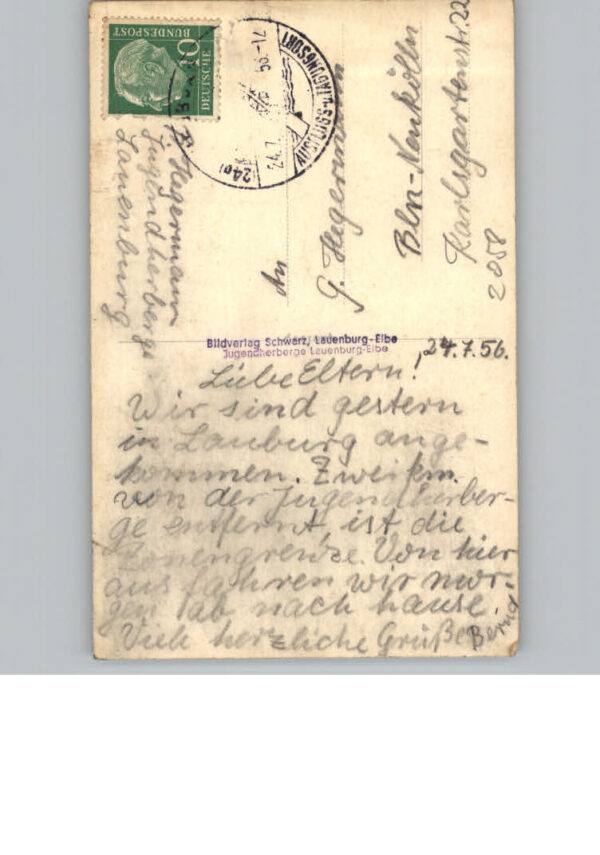 DEUTSCHE
BUNDESPOST
10
24.7.56.-17
AUSFLUGS-u.TAGUNGSORT
(24a)
B. Hegermann
Jugendherberge
Lauenburg
An
G. Hegermann
Bln-Neukölln
Karlsgartenstr. 22
2058
Bildverlag Schwarz, Lauenburg-Elbe
Jugendherberge Lauenburg-Elbe
24.7.56.
Liebe Eltern!
Wir sind gestern
in Lauburg ange-
kommen. Zwei km.
von der Jugendherber-
ge entfernt, ist die
Zonengrenze. Von hier
aus fahren wir mor-
gen ab nach hause.
Viele herzliche Grüße Bernd